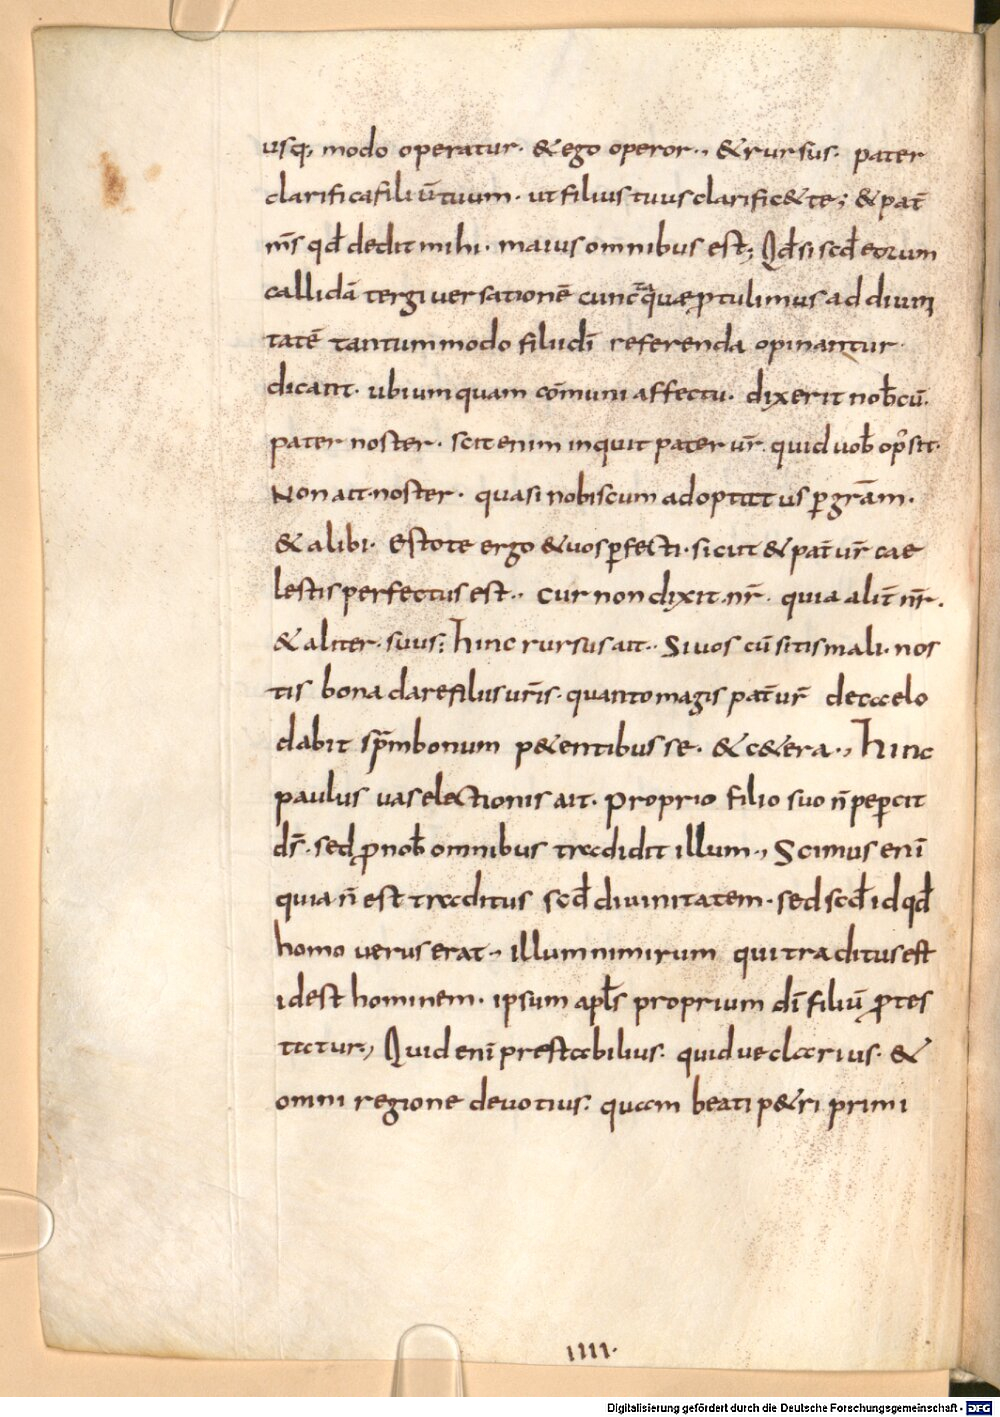 usq; modo operatur· & ego operor·, & rursus· pater
clarifica filiū tuum· ut filius tuus clarific& te; & pat̄
m̄s qd̄ dedit mihi· maius omnibus est; Qd̄ si scd̄ eorum
callidā tergiuersationē cuncta quae ꝓtulimus ad diuini
tatē tantummodo filii dī referenda opinantur·
dicant· ubi umquam cōmuni affectu· dixerit nob̄cū·
pater noster· scit enim inquit pater ur̄· quid uob̄ op̄ sit·
Non ait· noster· quasi nobiscum adoptiuus ꝑ grām·
& alibi· Estote ergo & uos ꝑfecti· sicut & pat̄ ur̄ cae
lestis perfectus est·· Cur non dixit· nr̄· quia alit̄ nr̄·
& aliter· suus; hinc rursus ait·· Si uos cū sitis mali· nos
tis bona dare filiis ur̄is· quanto magis pat̄ ur̄ de caelo
dabit spm̄ bonum p&entibus se· & c&era·, hinc
paulus uas electionis ait· proprio filio suo n̄ peꝑcit
ds̄· sed ꝓ nob̄ omnibus tradidit illum·, Scimus enī
quia n̄ est traditus scd̄ diuinitatem· sed scd̄ id qd̄
homo uerus erat·, illum nimirum qui traditus est
id est hominem· ipsum apl̄s proprium dī filiū ꝓtes
tatur·, Quid enī prestabilius· quid ue clarius· &
omni regione deuotius· quam beati p&ri primi
IIII·
Digitalisierung gefördert durch die Deutsche Forschungsgemeinschaft - DFG